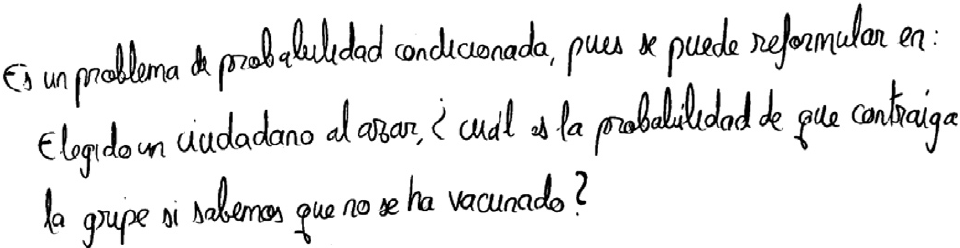 Es un problema de probabilidad condicionada, pues se puede reformular en:
Elegido un ciudadano al azar, ¿cuál es la probabilidad de que contraiga
la gripe si sabemos que no se ha vacunado?